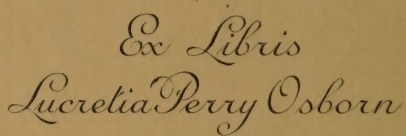 Ex Libris
Lucretia Perry Osborn